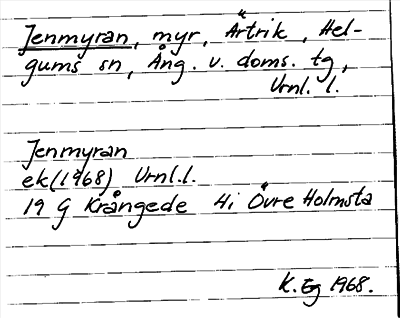 Jenmyran, myr, Ärtrik, Hel-
gums sn, Ång. v. doms. tg,
Urnl. l.
Jenmyran
ek(1968) Urnl.l.
19 G Krångede 4i Övre Holmsta
K. Eg 1968.